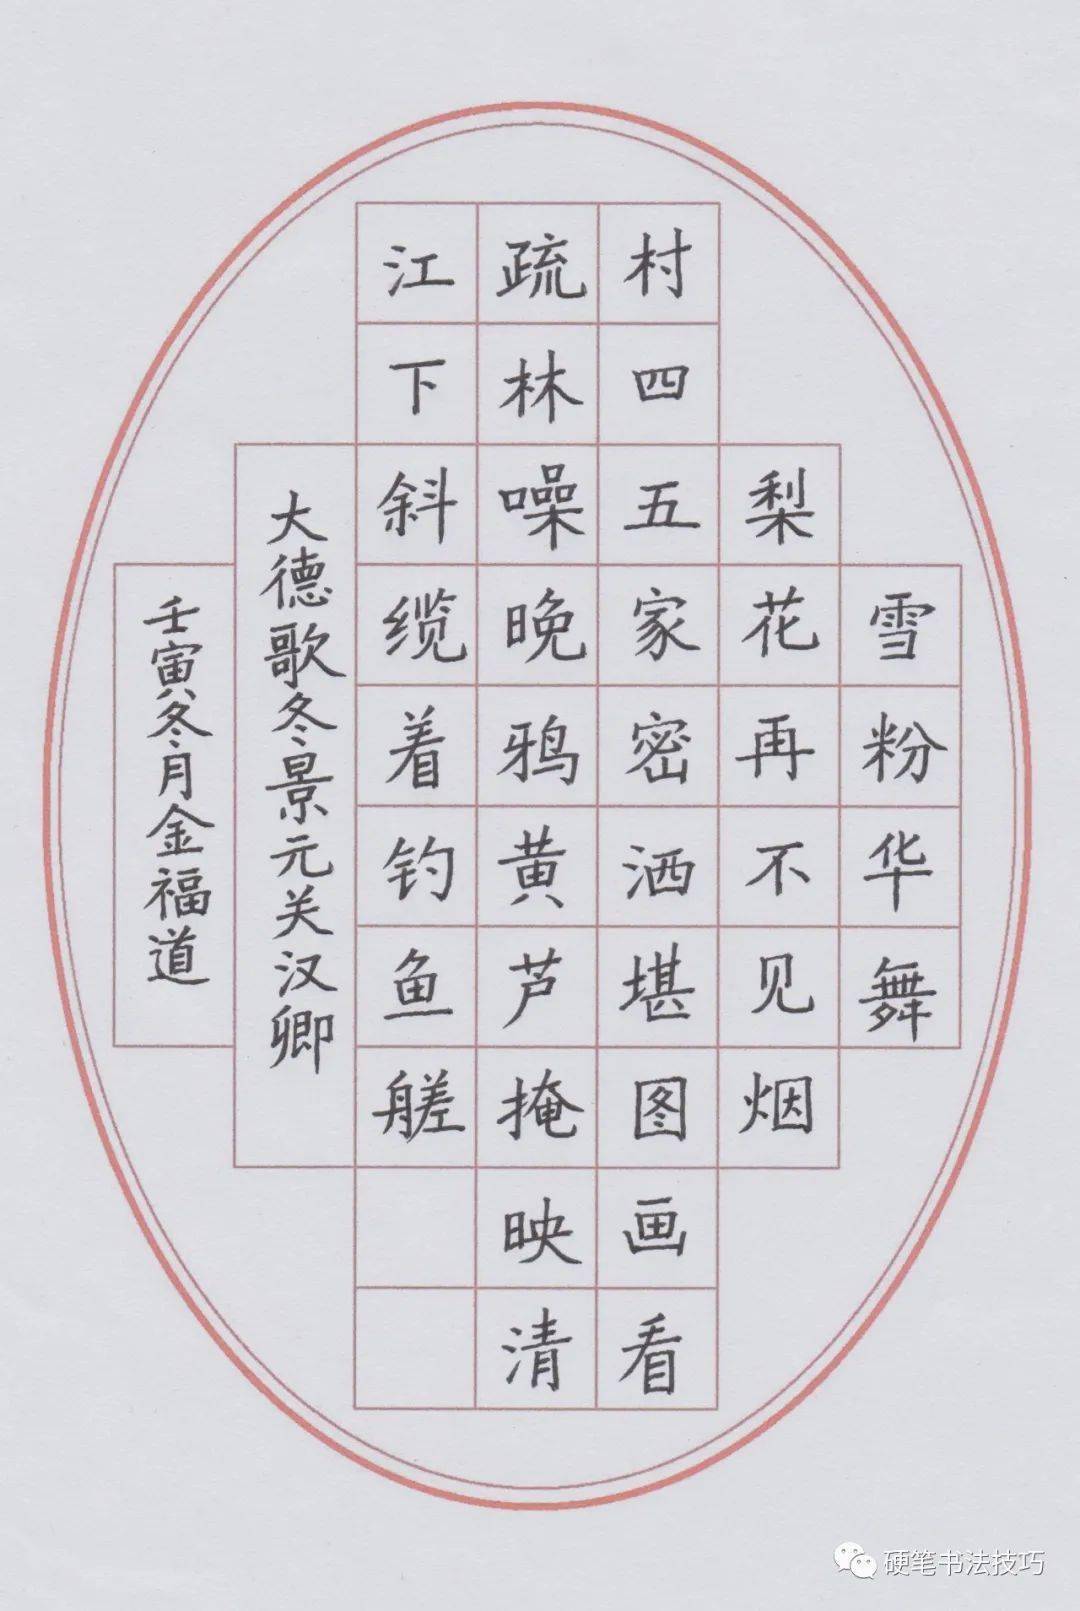 雪粉华舞
梨花再不见烟
村四五家密洒堪图画看
疏林噪晚鸦黄芦掩映清
江下斜缆着钓鱼艖
大德歌冬景元关汉卿
壬寅冬月金福道
硬笔书法技巧